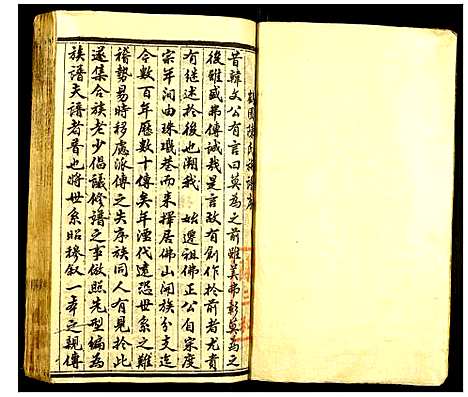 昔韓文公有言曰莫為之前雖美弗彰莫為之
後雖盛弗傳誠哉是言故有創作於前者尤貴
有继述於後也溯我 始遷祖佛正公自宋度
宗年间由珠璣巷而来擇居佛山開族分支迄
今数百年歷数十傳矣年湮代遠恐世系之難
稽勢易時移慮派傳之失序族同人有見於此
遂集合族老少倡議修譜之事倣照先型編為
族譜夫譜者普也將世系昭穆叙一本之親傳